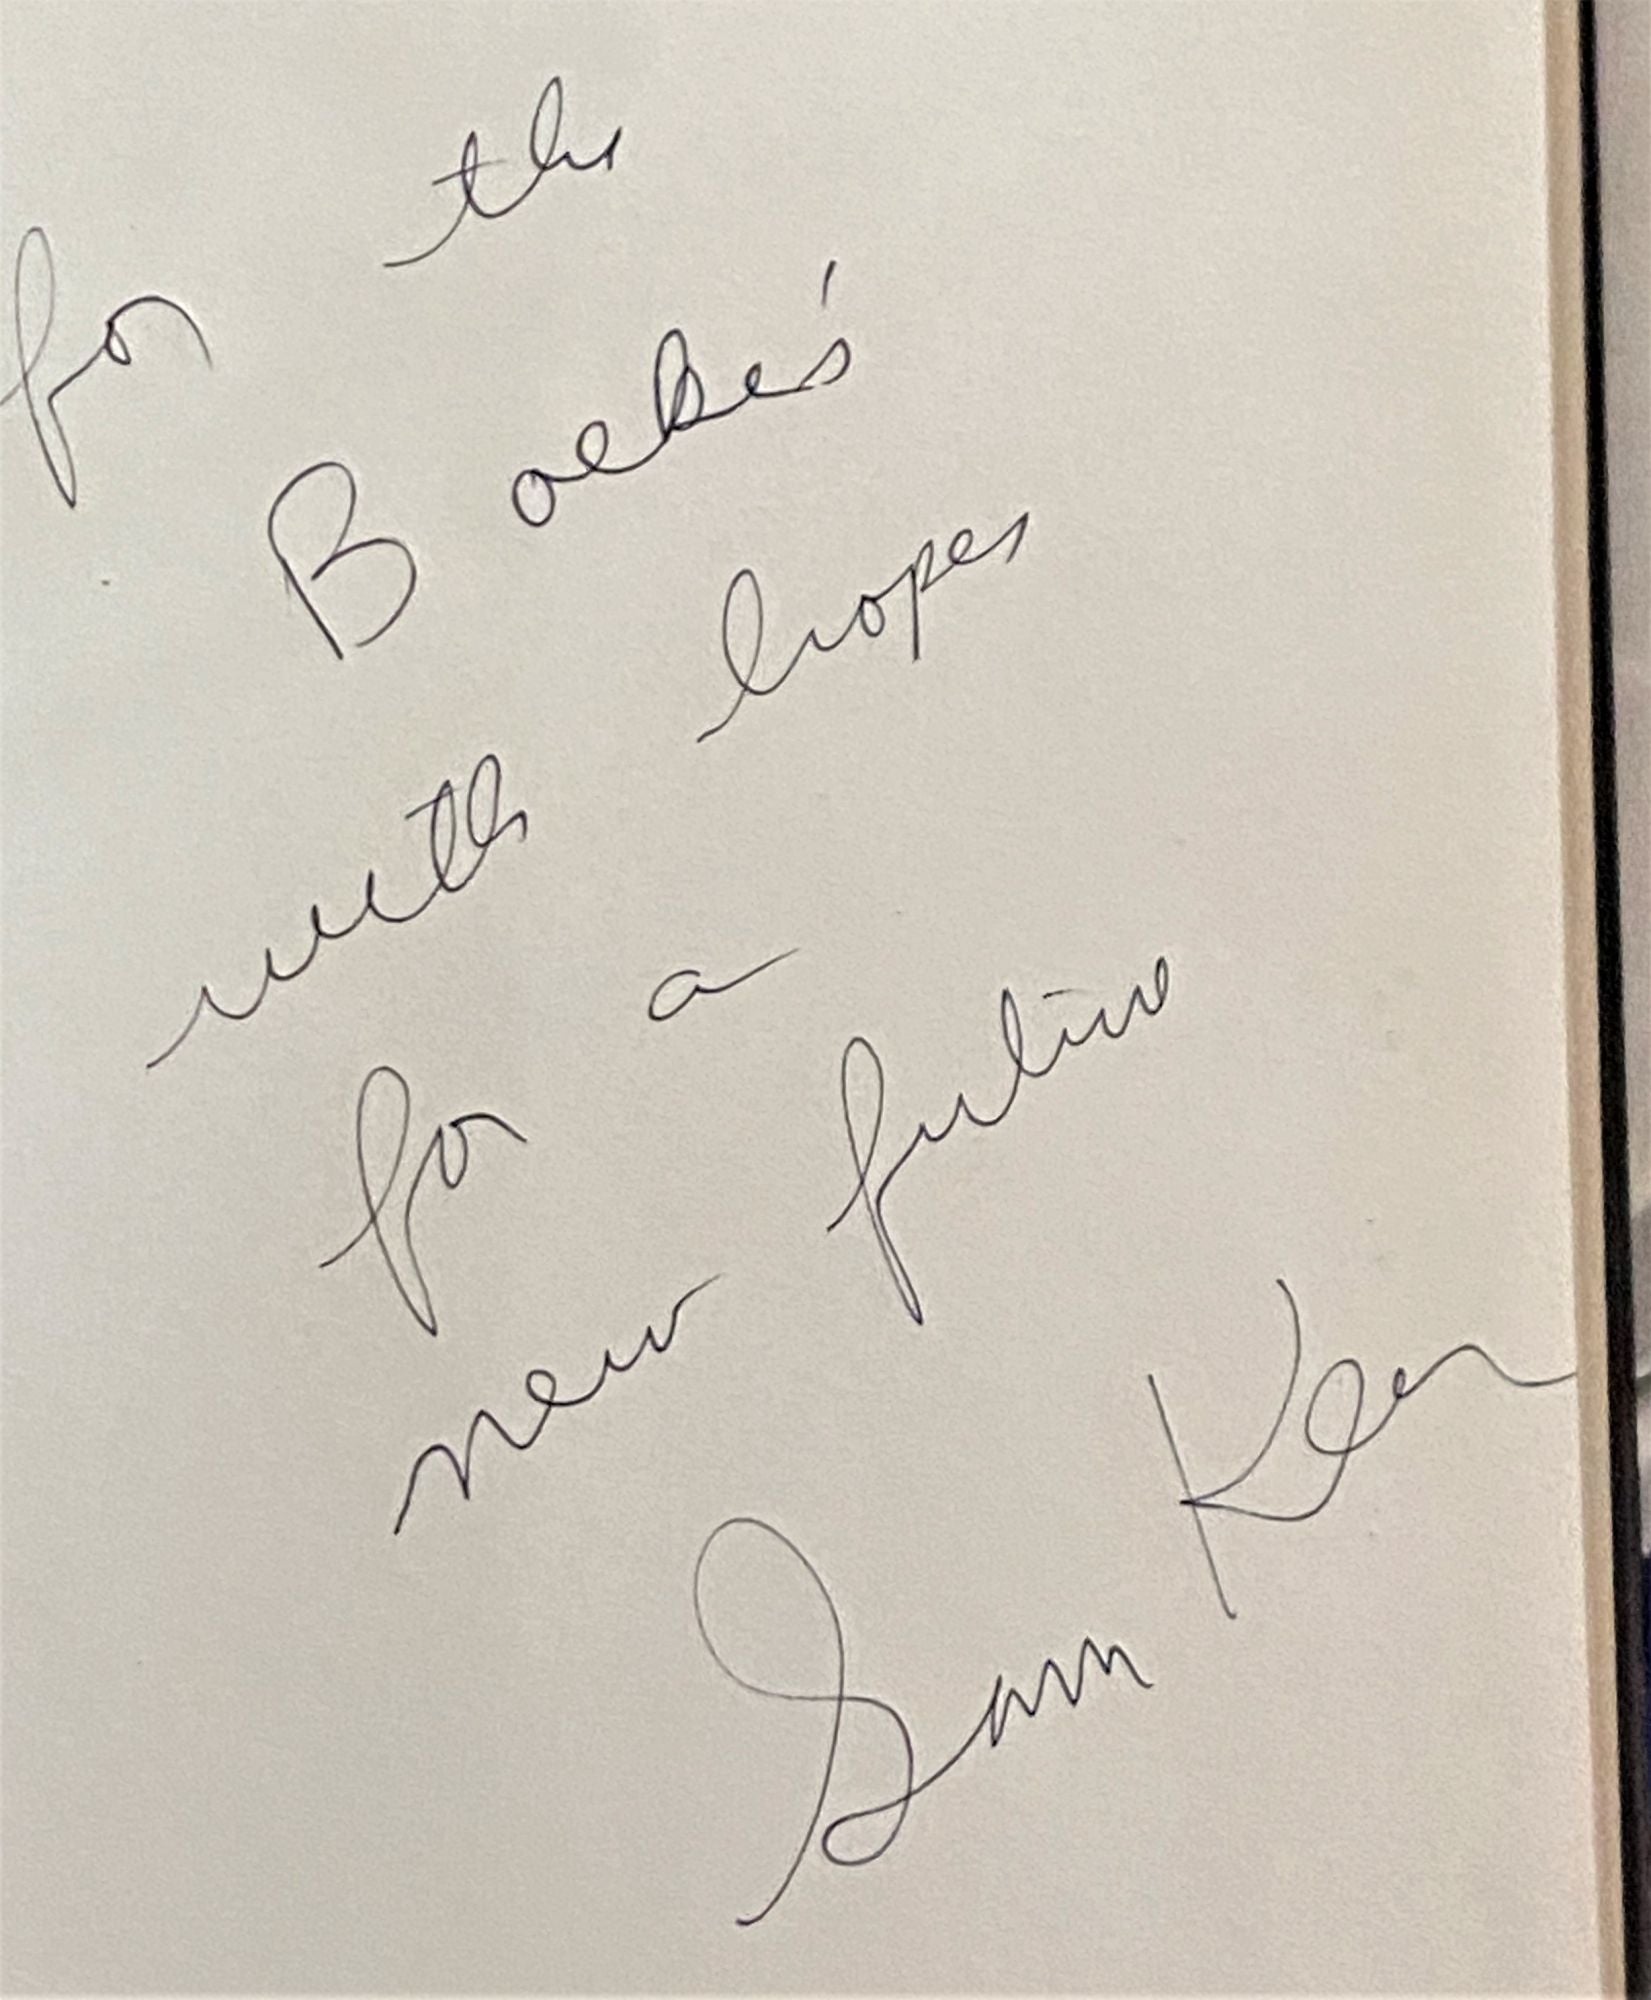 for the
Boeke's
with hopes
for a
new future
Sam Keen